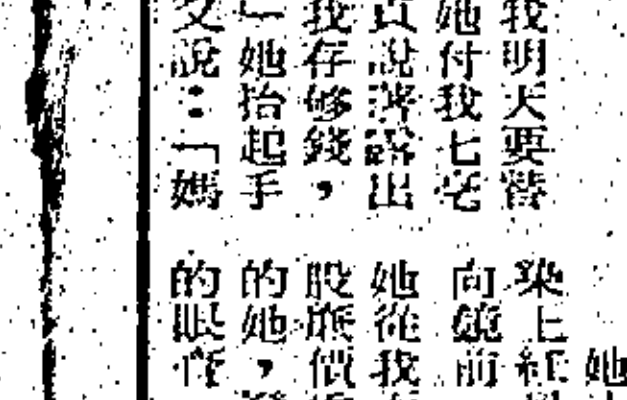 我明天要替
她付我七
說露出
我存够錢，
」她抬起手
又說：「媽
她
染上紅
向鏡前
她從我
股價
的她，
的眼